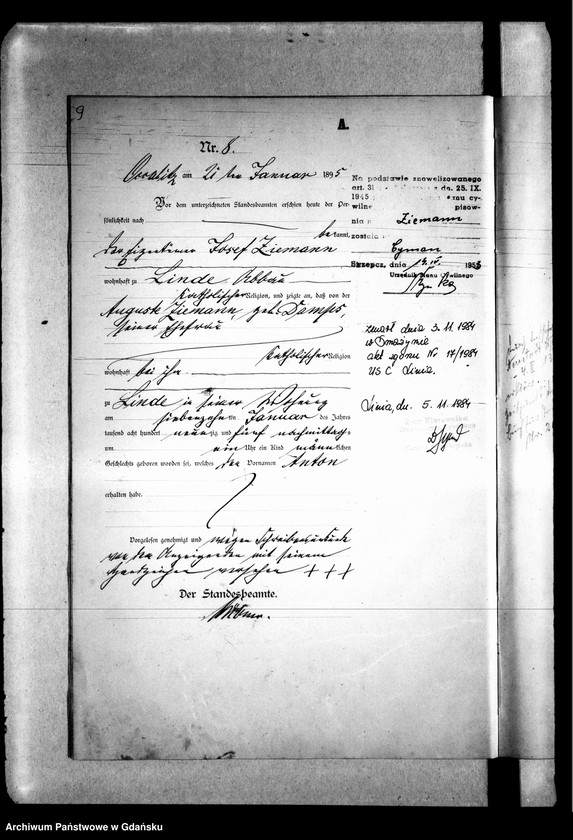 9
A.
Nr. 8.
am 21 ten Januar 1895
Vor dem unterzeichneten Standesbeamten erschien heute der Per-
sönlichkeit nach
bekannt,
der Eigentümer Josef Ziemann
wohnhaft zu Linde Abbau
katholischer Religion, und zeigte an, daß von der
Auguste Ziemann, geb. Damps,
seiner Ehefrau
katholischer Religion
wohnhaft bei ihm
zu Linde in seiner Wohnung
am siebenzehn ten Januar des Jahres
tausend acht hundert neunzig und fünf nachmittags
um ein Uhr ein Kind männlichen
Geschlechts geboren worden sei, welches den Vornamen Anton
erhalten habe.
Vorgelesen, genehmigt und wegen Schreibensunkunde
von dem Anzeigenden mit seinem
Handzeichen versehen + + +
Der Standesbeamte.
Na podstawie znowelizowanego
art. 31 dn. 25. IX.
1945 cy-
wilne pisow-
nia Ziemann
została
Cyman
dnia 14. IV. 1953
Urzędnik Stanu Cywilnego
zmarł dnia 3.11.1984
w Smażynie
akt zgonu Nr 17/1984
USC Linia.
Linia, dn. 5.11.1984
Archiwum Państwowe w Gdańsku